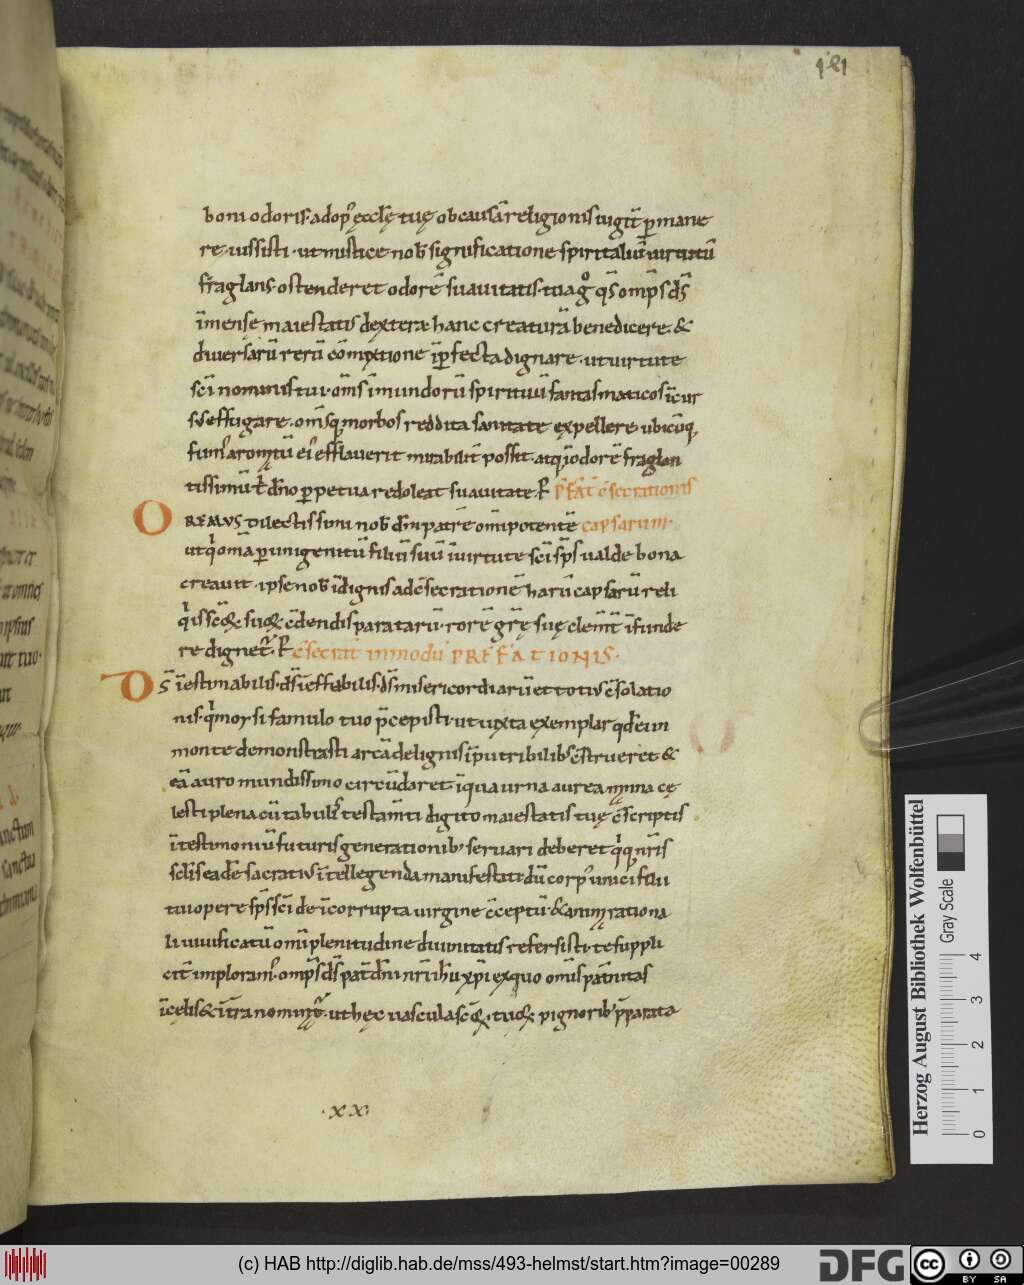 121
boni odoris· adop᷒ ęccl̄ę tuę ob causā religionis iugit̄ ꝑmane
re iussisti· ut mistice nob̄ significatione spiritaliū uirtutū
fraglans· ostenderet odorē suauitatis· tua gͦ q̄s om̄ps d̄s
īmensę maiestatis dextera· hanc creaturā benedicere· &
diuersarū rerū cōmixtione īꝑfecta dignare· ut uirtute
sc̄i nominis tui· om̄s īmundorū spirituū fantasmaticos īcur
sus effugare· om̄sq; morbos reddita sanitate expellere ubicūq;
fum᷒ aromatū ei᷒ efflauerit mirabilit̄ possit· atq; ī odorē fraglan
tissimū t̄ dn̄o ꝑpetua redoleat suauitate· ꝑ p̄fat̄ c̄secrationis
OREMUS Dilectissimi nob̄ dm̄ patrē om̄ipotentē capsarum·
ut qͥ om̄a ꝑ unigenitū filiū suū ī uirtute sc̄i sp̄s ualde bona
creauit· ipse nob̄ īdignis ad c̄secrationē harū capsarū reli
qͥis sc̄oꝝ suoꝝ c̄dendis paratarū· rorē gr̄ę suę clem̄t̄ īfunde
re dignet᷒· ꝑ c̄secrat̄ in modū PREFATIONIS·
Ds̄ īestimabilis· d̄s īeffabilis· d̄s misericordiarū et totius c̄solatio
nis· qͥ moysi famulo tuo p̄cepisti· ut iuxta exemplar qd̄ ei in
monte demonstrasti arcā de lignis īputribilib; c̄strueret &
eā auro mundissimo circūdaret ī qua urna aurea manna cę
lesti plena cū tabulis testam̄ti digito maiestatis tuę c̄scriptis
ī testimoniū futuris generationib; seruari deberet qͥq; nr̄is
sc̄lis eadē sacratius ītellegenda manifestati dū corp᷒ unici filii
tui opere sp̄s sc̄i de īcorrupta uirgine c̄ceptū· & anima rationa
li uiuificatū om̄i plenitudine diuinitatis refersisti· te suppli
cit̄ imploram᷒· om̄ps d̄s pat̄ dn̄i nr̄i ih̄u xp̄i ex quo om̄is pat̄nitas
ī cęlis & ī t̄ra nominat᷒· ut hęc uascula sc̄oꝝ tuoꝝ pignorib; p̄parata
·xx·
Herzog August Bibliothek Wolfenbüttel
Gray Scale
0 1 2 3 4
(c) HAB http://diglib.hab.de/mss/493-helmst/start.htm?image=00289
DFG
cc BY SA